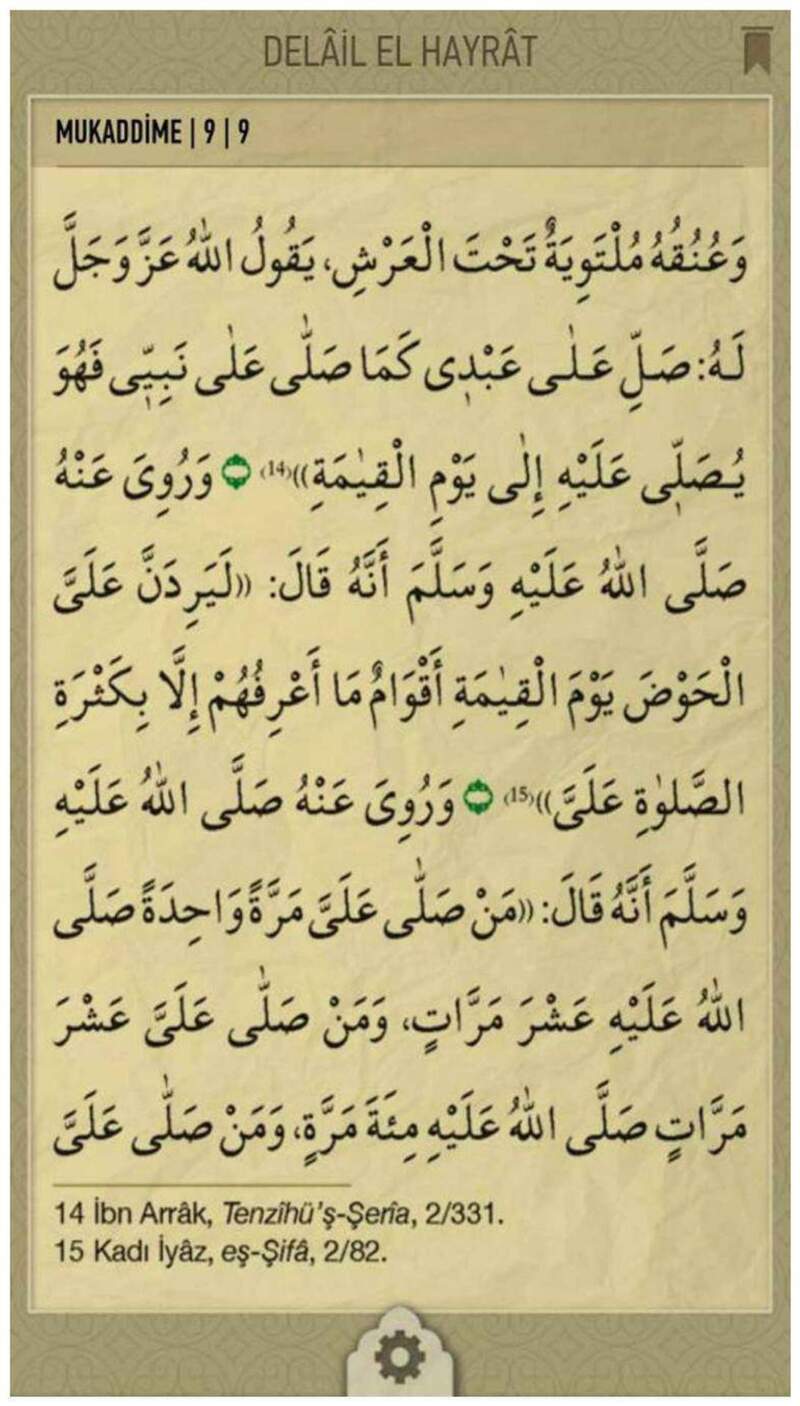 DELÂİL EL HAYRÂT
MUKADDİME | 9 | 9
وَعُنُقُهُ مُلْتَوِيَةٌ تَحْتَ الْعَرْشِ، يَقُولُ اللّٰهُ عَزَّ وَجَلَّ
لَهُ: صَلِّ عَلٰى عَبْدِى كَمَا صَلّٰى عَلٰى نَبِيِّى فَهُوَ
يُصَلِّى عَلَيْهِ إِلٰى يَوْمِ الْقِيٰمَةِ))(14) وَرُوِىَ عَنْهُ
صَلَّى اللّٰهُ عَلَيْهِ وَسَلَّمَ أَنَّهُ قَالَ: ((لَيَرِدَنَّ عَلَىَّ
الْحَوْضَ يَوْمَ الْقِيٰمَةِ أَقْوَامٌ مَا أَعْرِفُهُمْ إِلَّا بِكَثْرَةِ
الصَّلٰوةِ عَلَىَّ))(15) وَرُوِىَ عَنْهُ صَلَّى اللّٰهُ عَلَيْهِ
وَسَلَّمَ أَنَّهُ قَالَ: ((مَنْ صَلّٰى عَلَىَّ مَرَّةً وَاحِدَةً صَلَّى
اللّٰهُ عَلَيْهِ عَشْرَ مَرَّاتٍ، وَمَنْ صَلّٰى عَلَىَّ عَشْرَ
مَرَّاتٍ صَلَّى اللّٰهُ عَلَيْهِ مِئَةَ مَرَّةٍ، وَمَنْ صَلّٰى عَلَىَّ
14 İbn Arrâk, Tenzîhü'ş-Şerîa, 2/331.
15 Kadı İyâz, eş-Şifâ, 2/82.